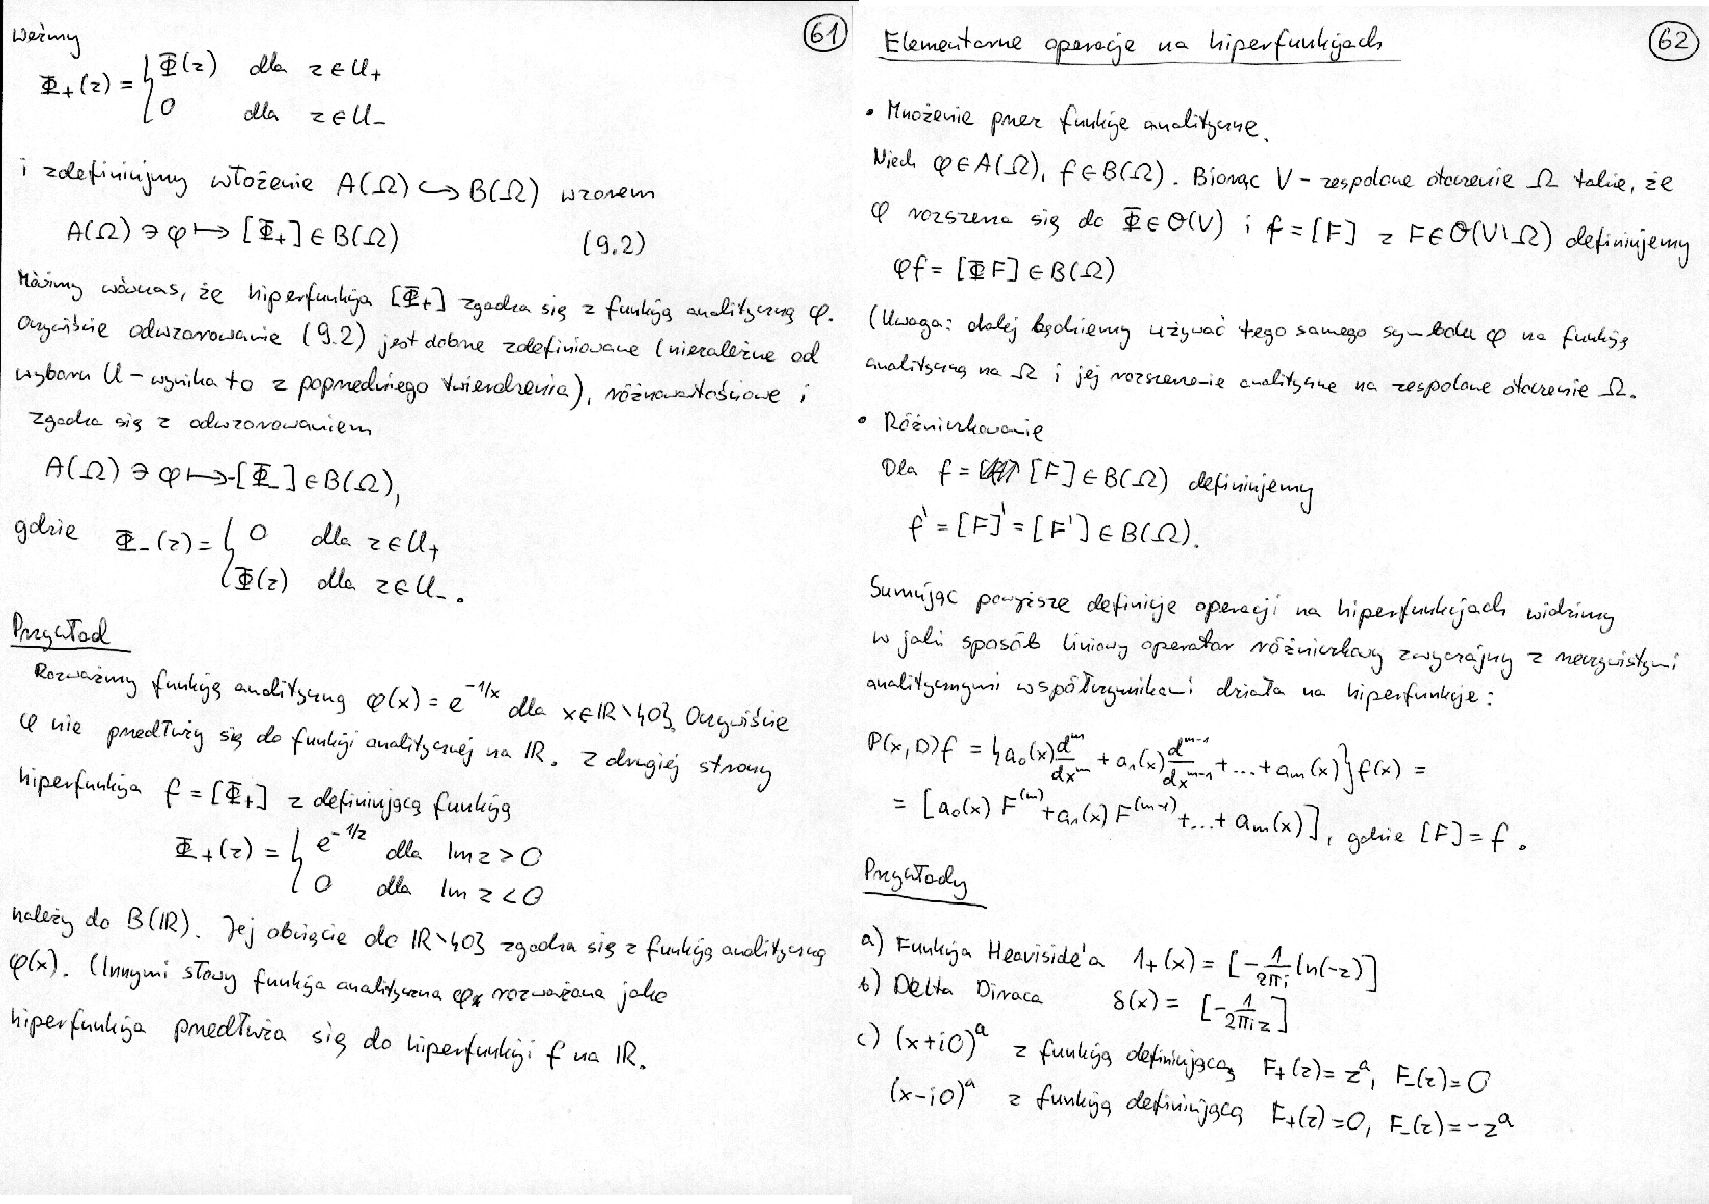 61
Weźmy
Φ₊(z) = { Φ(z) dla z∈U₊
0 dla z∈U₋
i zdefiniujmy włożenie A(Ω) ↪ B(Ω) wzorem
A(Ω) ∋ φ ↦ [Φ₊] ∈ B(Ω) (9.2)
Mówimy wówczas, że hiperfunkcja [Φ₊] zgadza się z funkcją analityczną φ.
Oczywiście odwzorowanie (9.2) jest dobrze zdefiniowane (niezależne od
wyboru U – wynika to z poprzedniego twierdzenia), różnowartościowe i
zgadza się z odwzorowaniem
A(Ω) ∋ φ ↦ -[Φ₋] ∈ B(Ω),
gdzie Φ₋(z) = { 0 dla z∈U₊
Φ(z) dla z∈U₋.
Przykład
Rozważmy funkcję analityczną φ(x) = e^{-1/x} dla x∈ℝ\{0}. Oczywiście
φ nie przedłuży się do funkcji analitycznej na ℝ. Z drugiej strony
hiperfunkcja f = [Φ₊] z definiującą funkcją
Φ₊(z) = { e^{-1/z} dla Im z > 0
0 dla Im z < 0
należy do B(ℝ). Jej obcięcie do ℝ\{0} zgadza się z funkcją analityczną
φ(x). (Innymi słowy funkcja analityczna φ rozważana jako
hiperfunkcja przedłuża się do hiperfunkcji f na ℝ.
62
Elementarne operacje na hiperfunkcjach
• Mnożenie przez funkcje analityczne.
Niech φ∈A(Ω), f∈B(Ω). Biorąc V – zespolone otoczenie Ω takie, że
φ rozszerza się do Φ∈O(V) i f = [F] z F∈O(V\Ω) definiujemy
φf = [ΦF] ∈ B(Ω)
(Uwaga: dalej będziemy używać tego samego symbolu φ na funkcję
analityczną na Ω i jej rozszerzenie analityczne na zespolone otoczenie Ω.
• Różniczkowanie
Dla f = [F] ∈ B(Ω) definiujemy
f' = [F]' = [F'] ∈ B(Ω).
Sumując powyższe definicje operacji na hiperfunkcjach widzimy
w jaki sposób liniowy operator różniczkowy zwyczajny z rzeczywistymi
analitycznymi współczynnikami działa na hiperfunkcje:
P(x,D)f = {a₀(x) dᵐ/dxᵐ + a₁(x) dᵐ⁻¹/dxᵐ⁻¹ + ... + aₘ(x)} f(x) =
= [a₀(x) F⁽ᵐ⁾ + a₁(x) F⁽ᵐ⁻¹⁾ + ... + aₘ(x)], gdzie [F] = f.
Przykłady
a) Funkcja Heaviside'a 1₊(x) = [-1/2πi ln(-z)]
b) Delta Diraca δ(x) = [-1/2πiz]
c) (x+i0)ᵃ z funkcją definiującą F₊(z) = zᵃ, F₋(z) = 0
(x-i0)ᵃ z funkcją definiującą F₊(z) = 0, F₋(z) = -zᵃ